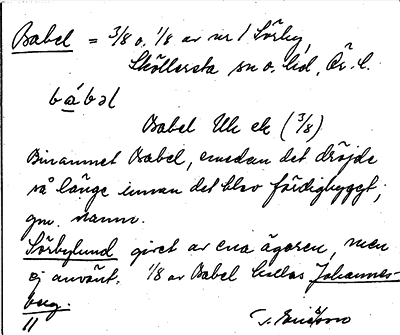 Babel = 3/8 o. 1/8 av nr 1 Sörby,
Sköllersta sn o. hd, Ör. l.
bábəl
Babel Uk ek (3/8)
Binamnet Babel, emedan det dröjde
så länge innan det blev färdigbyggt;
gm. namn.
Sörbylund givet av ena ägaren, men
ej använt. 1/8 av Babel kallas Johannes-
berg.